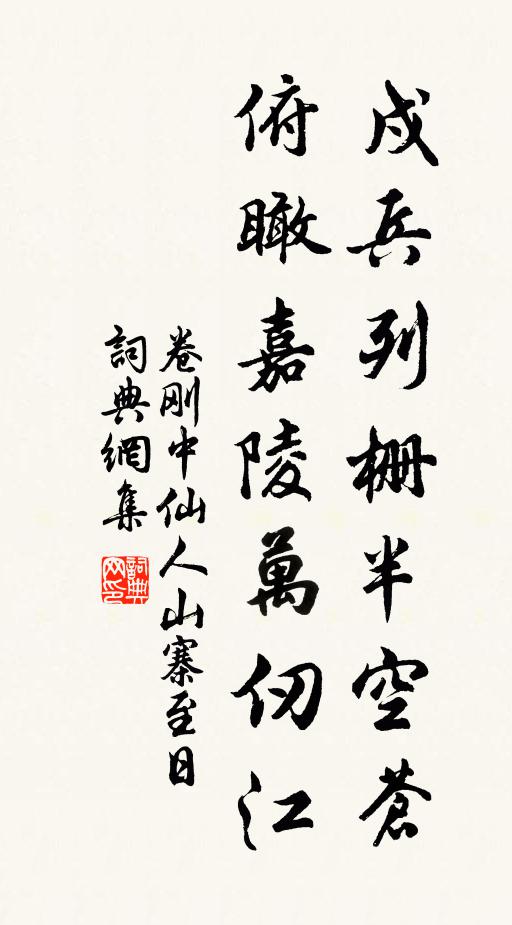 戍兵列柵半空蒼
俯瞰嘉陵萬仞江
卷刚中仙人山寨至日
詞典網集
詞典
网印